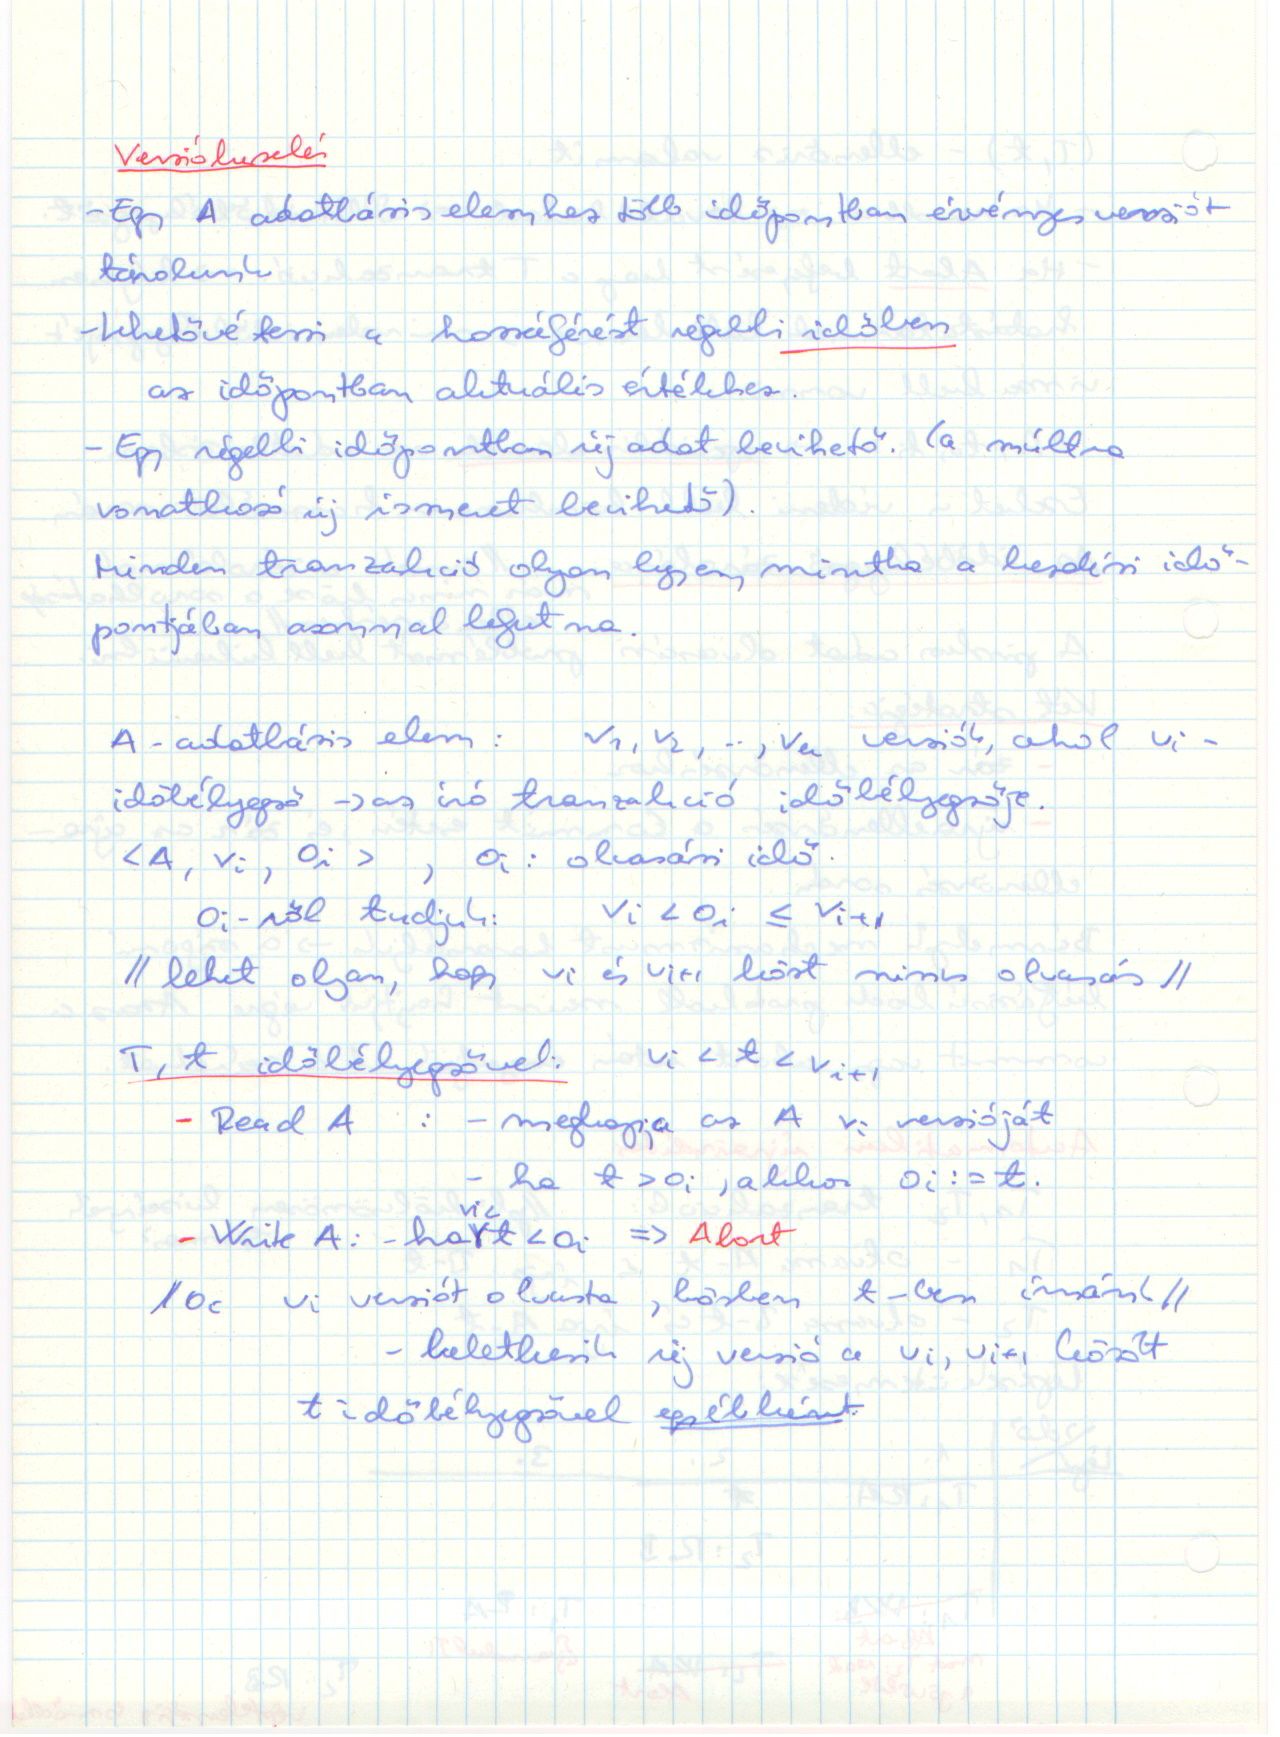 Verziókezelés
- Egy A adatbázis elemhez több időpontban érvényes verziót
tárolunk
- lehetővé teszi a hozzáférést régebbi időben
az időpontban aktuális értékhez.
- Egy régebbi időpontban új adat bevihető. (a múltra
vonatkozó új ismeret bevihető).
Minden tranzakció olyan legyen, mintha a kezdési idő-
pontjában azonnal lefutna.
A - adatbázis elem: v1, v2, .., vn verziók, ahol vi -
időbélyegző → az író tranzakció időbélyegzője.
<A, vi, Oi> , Oi : olvasási idő.
Oi-ről tudjuk: vi < Oi ≤ vi+1
// lehet olyan, hogy vi és vi+1 közt nincs olvasás //
T, t időbélyegzővel: vi < t < vi+1
- Read A : - meghozzuk az A vi verzióját
- ha t > Oi , akkor Oi := t.
- Write A: - ha vi< t < Oi => Abort
// Oi vi verziót olvasta , közben t-ben írnánk //
- keletkezik új verzió a vi, vi+1 között
t időbélyegzővel egyébként.